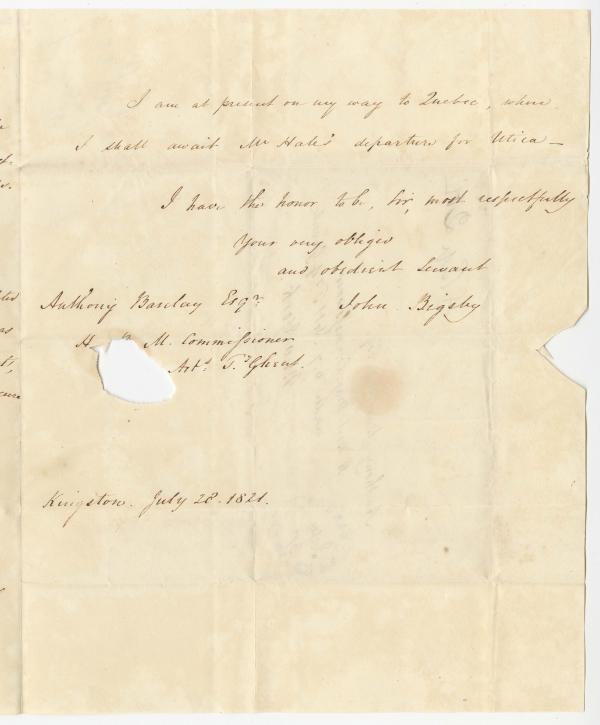 I am at present on my way to Quebec, where
I shall await Mr Hale's departure for Utica—
I have the honor to be, Sir, most respectfully
Your very obliged
and obedient Servant
Anthony Barclay Esqr. John Bigsby
H. B. M. Commissioner
T. Ghent.
Kingston. July 28. 1821.